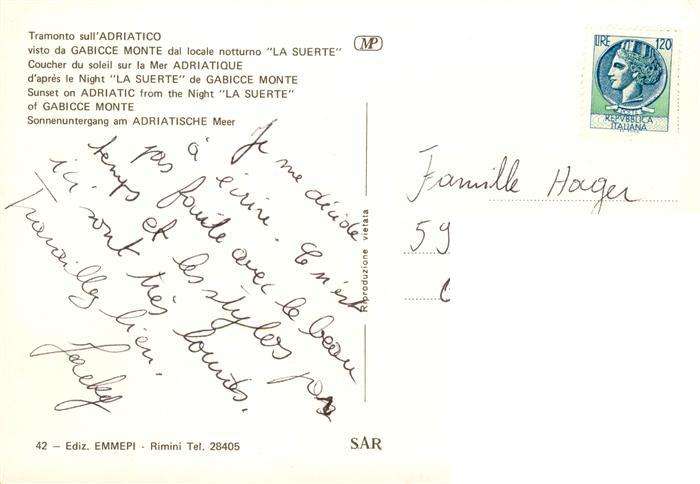 Tramonto sull'ADRIATICO
visto da GABICCE MONTE dal locale notturno "LA SUERTE"
Coucher du soleil sur la Mer ADRIATIQUE
d'après le Night "LA SUERTE" de GABICCE MONTE
Sunset on ADRIATIC from the Night "LA SUERTE"
of GABICCE MONTE
Sonnenuntergang am ADRIATISCHE Meer
MP
LIRE 120
POSTE
REPVBBLICA
ITALIANA
Je me décide
à écrire. Ce n'est
pas faute avec le beau
temps et les stylos pas
ici sont très lourds.
Travaillez bien.
Jacky
Riproduzione vietata
Famille Hager
59
42 - Ediz. EMMEPI - Rimini Tel. 28405
SAR